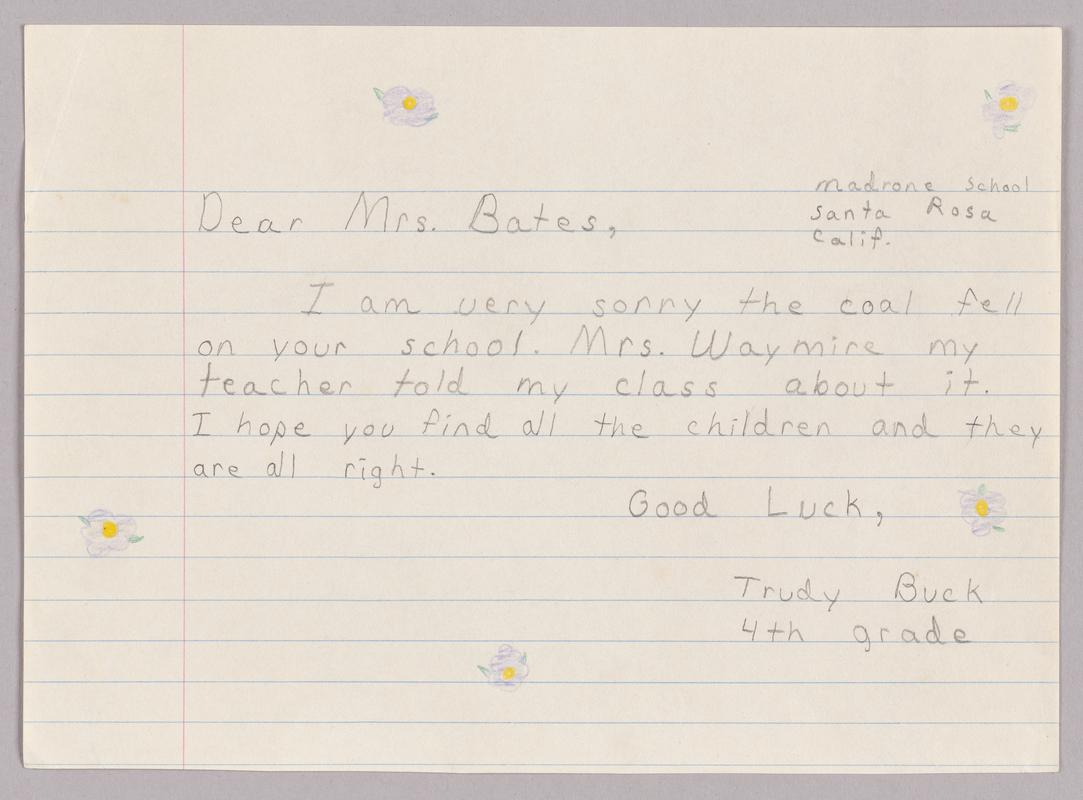 madrone school
santa Rosa
Calif.
Dear Mrs. Bates,
I am very sorry the coal fell
on your school. Mrs. Waymire my
teacher told my class about it.
I hope you find all the children and they
are all right.
Good Luck,
Trudy Buck
4th grade